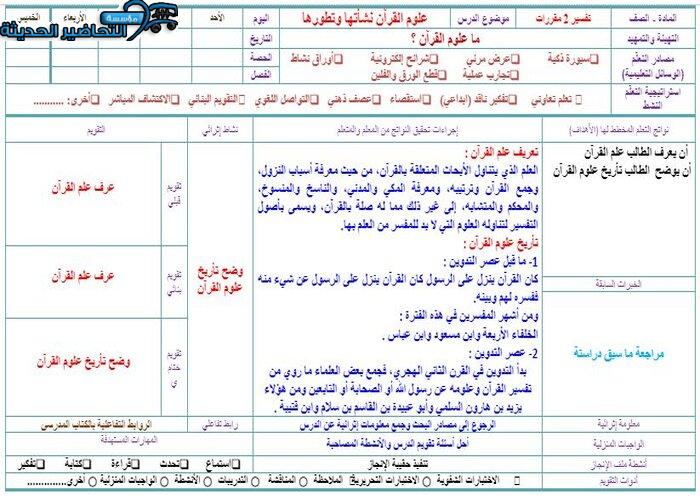 مؤسسة
التحاضير الحديثة
المادة - الصف
تفسير 2 مقررات
موضوع الدرس
علوم القرآن نشأتها وتطورها
اليوم
الأحد
الأربعاء
الخميس
التهيئة والتمهيد
ما علوم القرآن ؟
التاريخ
مصادر التعلم
(الوسائل التعليمية)
□سبورة ذكية □عرض مرئي □شرائح إلكترونية □أوراق نشاط
□تجارب عملية □قطع الورق والفلين
الحصة
الفصل
استراتيجية التعلم
النشط
□ تعلم تعاوني □تفكير ناقد (ابداعي) □استقصاء □عصف ذهني □التواصل اللغوي □التقويم البنائي □الاكتشاف المباشر □أخرى: ...........
نواتج التعلم المخطط لها (الأهداف)
إجراءات تحقيق النواتج من المعلم والمتعلم
نشاط إثرائي
التقويم
أن يعرف الطالب علم القرآن
أن يوضح الطالب تأريخ علوم القرآن
الخبرات السابقة
مراجعة ما سبق دراستة
تعريف علم القرآن :
العلم الذي يتناول الأبحاث المتعلقة بالقرآن، من حيث معرفة أسباب النزول،
وجمع القرآن وترتيبه، ومعرفة المكي والمدني، والناسخ والمنسوخ،
والمحكم والمتشابه، إلى غير ذلك مما له صلة بالقرآن، ويسمى بأصول
التفسير لتناوله العلوم التي لا بد للمفسر من العلم بها.
تأريخ علوم القرآن :
1- ما قبل عصر التدوين :
كان القرآن ينزل على الرسول كان القرآن ينزل على الرسول عن شيء منه
ففسره لهم وبينه.
ومن أشهر المفسرين في هذه الفترة :
الخلفاء الأربعة وابن مسعود وابن عباس .
2- عصر التدوين :
بدأ التدوين في القرن الثاني الهجري، فجمع بعض العلماء ما روي من
تفسير القرآن وعلومه عن رسول الله أو الصحابة أو التابعين ومن هؤلاء
يزيد بن هارون السلمي وأبو عبيدة بن القاسم بن سلام وابن قتيبة .
وضح تأريخ
علوم القرآن
تقويم
قبلي
عرف علم القرآن
تقويم
بنائي
عرف علم القرآن
تقويم
ختام
ي
وضح تأريخ علوم القرآن
معلومة إثرائية
الرجوع إلى مصادر البحث وجمع معلومات إثرائية عن الدرس
رابط تفاعلي
الروابط التفاعلية بالكتاب المدرسي
الواجبات المنزلية
أحل أسئلة تقويم الدرس والأنشطة المصاحبة
المهارات المستهدفة
أنشطة ملف الإنجاز
تنفيذ حقيبة الإنجاز
□ استماع □ تحدث □ قراءة □ كتابة □ تفكير
أدوات التقويم
□ الاختبارات الشفوية □ الاختبارات التحريرية □ الملاحظة □ المناقشة □ التدريبات □ الأنشطة □ الواجبات المنزلية □ أخرى..............